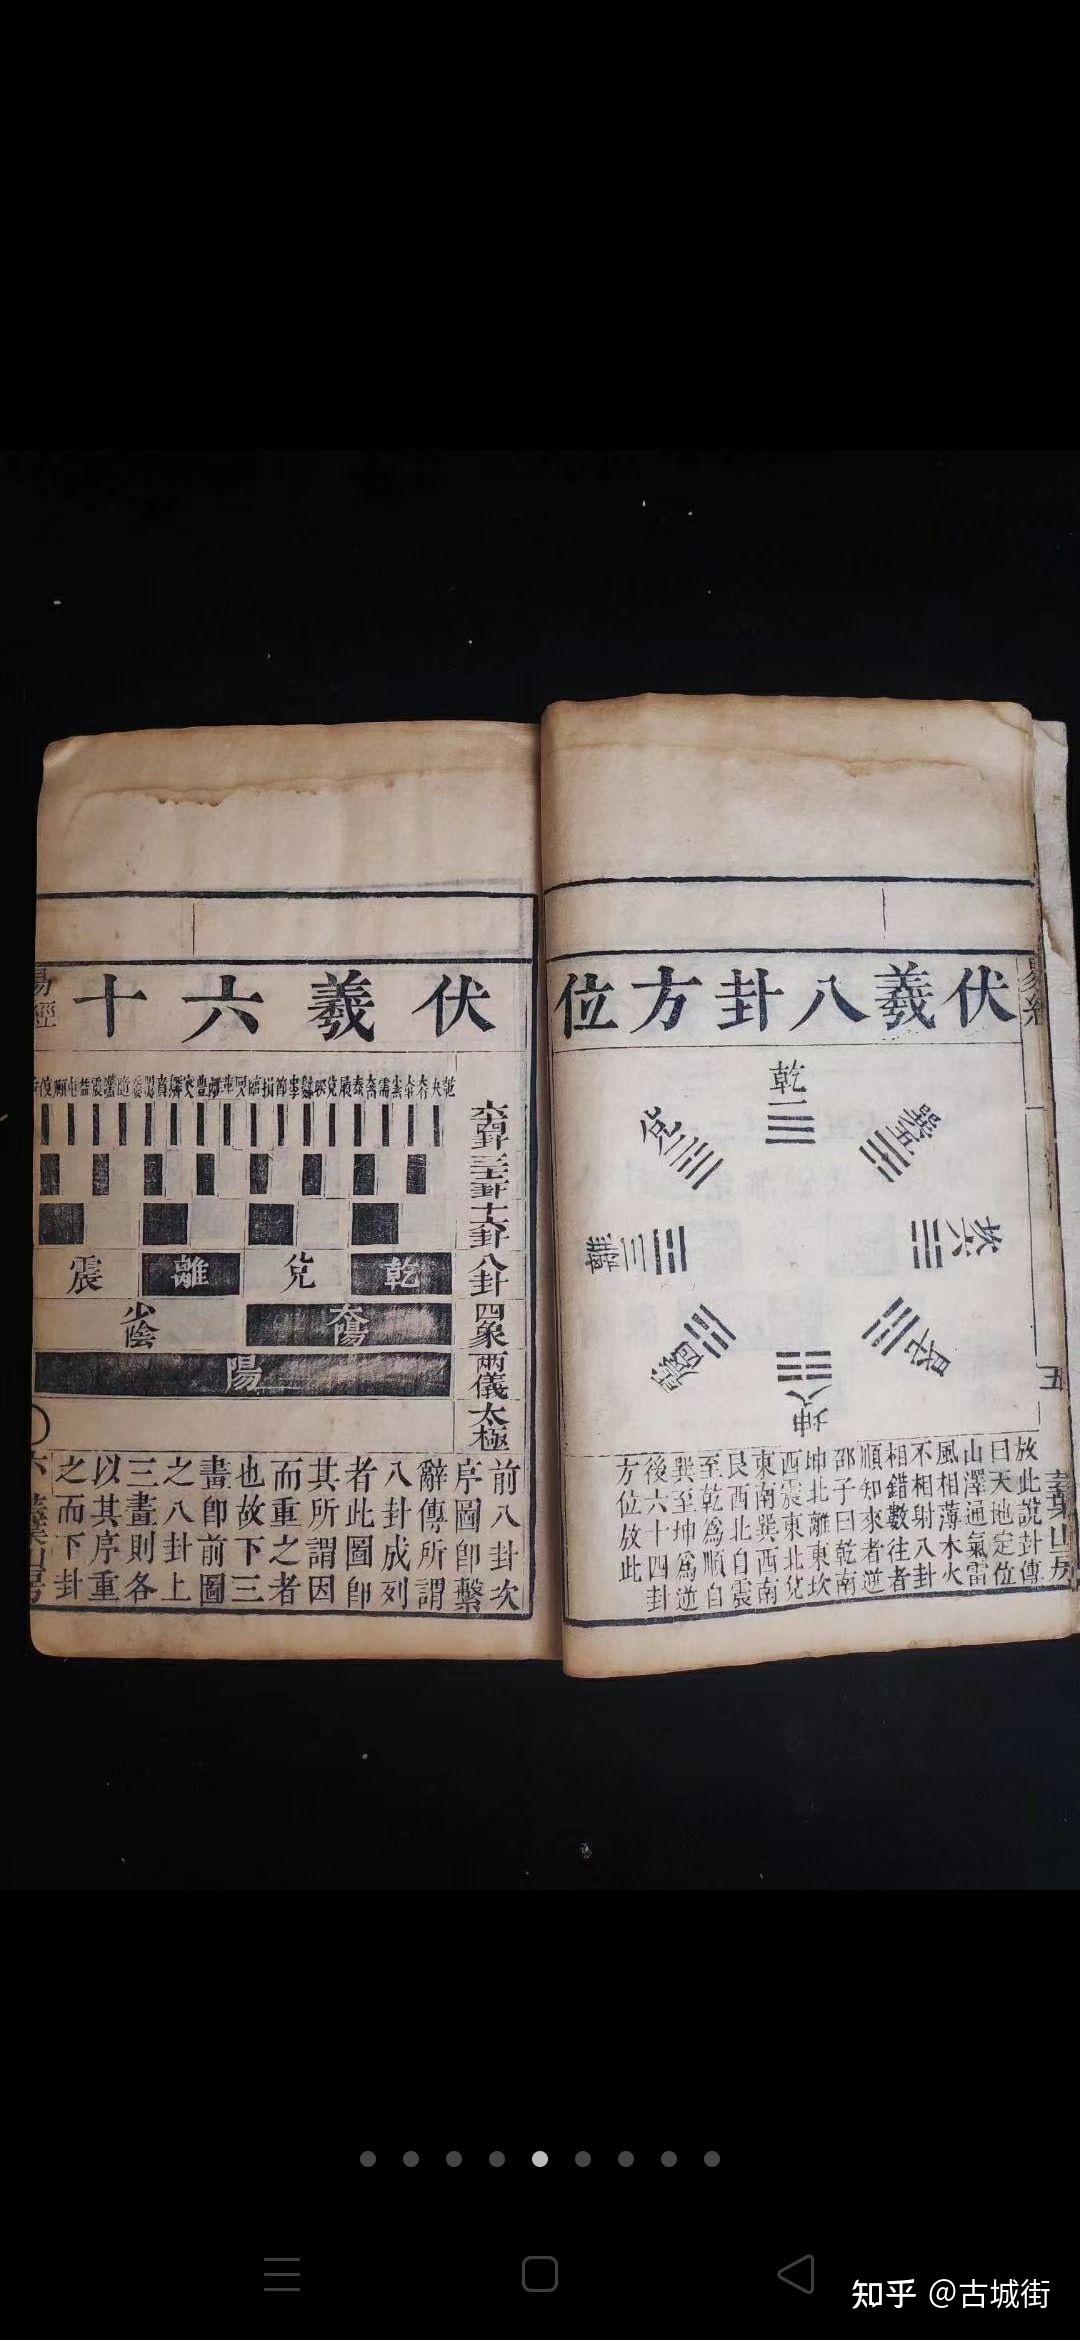 伏羲八卦方位
乾一
兌二
離三
巽五
坎六
艮七
坤八
放此說卦傳
曰天地定位
山澤通氣雷
風相薄水火
不相射八卦
相錯數往者
順知來者逆
邵子曰乾南
坤北離東坎
西震東北兌
東南巽西南
艮西北自震
至乾爲順自
巽至坤爲逆
後六十四卦
方位放此
五
伏羲六十
易經
六十四卦
三十二卦
十六卦
八卦
乾
兌
離
震
四象
太陽
少陰
兩儀
陽
太極
前八卦次
序圖卽繫
辭傳所謂
八卦成列
者此圖卽
其所謂因
而重之者
也故下三
畫卽前圖
之八卦上
三畫則各
以其序重
之而下卦
知乎 @古城街